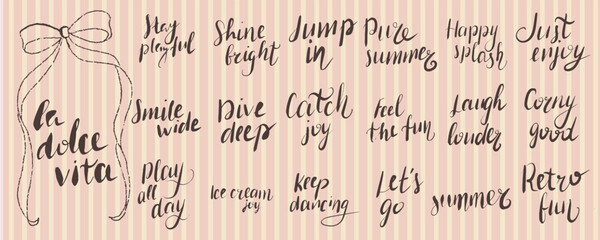 la
dolce
vita
Stay
playful
Shine
bright
Jump
in
Pure
summer
Happy
splash
Just
enjoy
Smile
wide
Dive
deep
Catch
joy
Feel
the fun
Laugh
louder
Corny
good
Play
all
day
Ice cream
joy
Keep
dancing
Let's
go
summer
Retro
fun